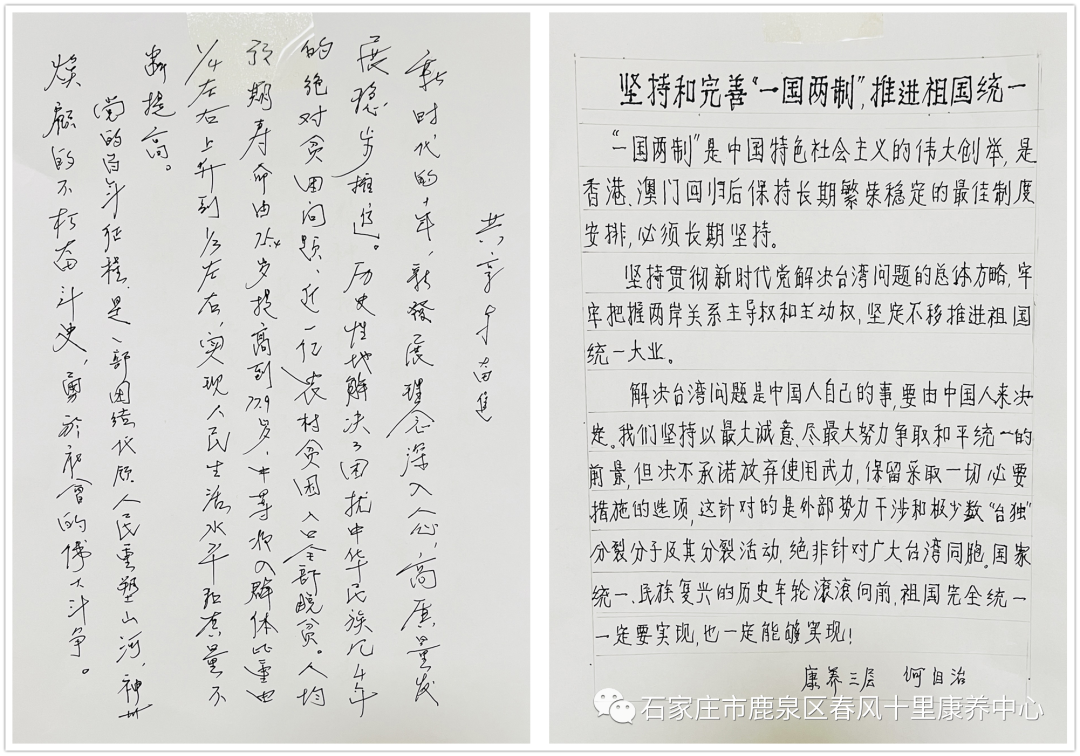 共享 奋进
新时代的十年，新發展理念深入人心，高质量发
展稳步推进。历史性地解决了困扰中华民族几千年
的绝对贫困问题，近一亿农村贫困人口全部脱贫。人均
预期寿命由75.4岁提高到77.9岁，中等收入群体比重由
1/4左右上升到1/3左右，实现人民生活水平和质量不
断提高。
党的百年征程，是一部团结代领人民重塑山河，神州
焕颜的不朽奋斗史，勇於 的伟大斗争。
坚持和完善“一国两制”，推进祖国统一
“一国两制”是中国特色社会主义的伟大创举，是
香港、澳门回归后保持长期繁荣稳定的最佳制度
安排，必须长期坚持。
坚持贯彻新时代党解决台湾问题的总体方略，牢
牢把握两岸关系主导权和主动权，坚定不移推进祖国
统一大业。
解决台湾问题是中国人自己的事，要由中国人来决
定。我们坚持以最大诚意、尽最大努力争取和平统一的
前景，但决不承诺放弃使用武力，保留采取一切必要
措施的选项，这针对的是外部势力干涉和极少数“台独”
分裂分子及其分裂活动，绝非针对广大台湾同胞。国家
统一、民族复兴的历史车轮滚滚向前，祖国完全统一
一定要实现，也一定能够实现！
康养三层 何自治
石家庄市鹿泉区春风十里康养中心